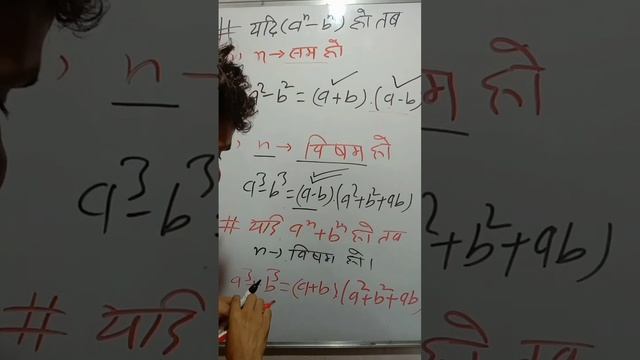 # यदि (aⁿ-bⁿ) हो तब
), n → सम हो
a²-b² = (a+b).(a-b)
), n → विषम हो
a³-b³ = (a-b).(a²+b²+ab)
# यदि aⁿ+bⁿ हो तब
n → विषम हो।
a³-b³ = (a+b)(a²+b²+ab)